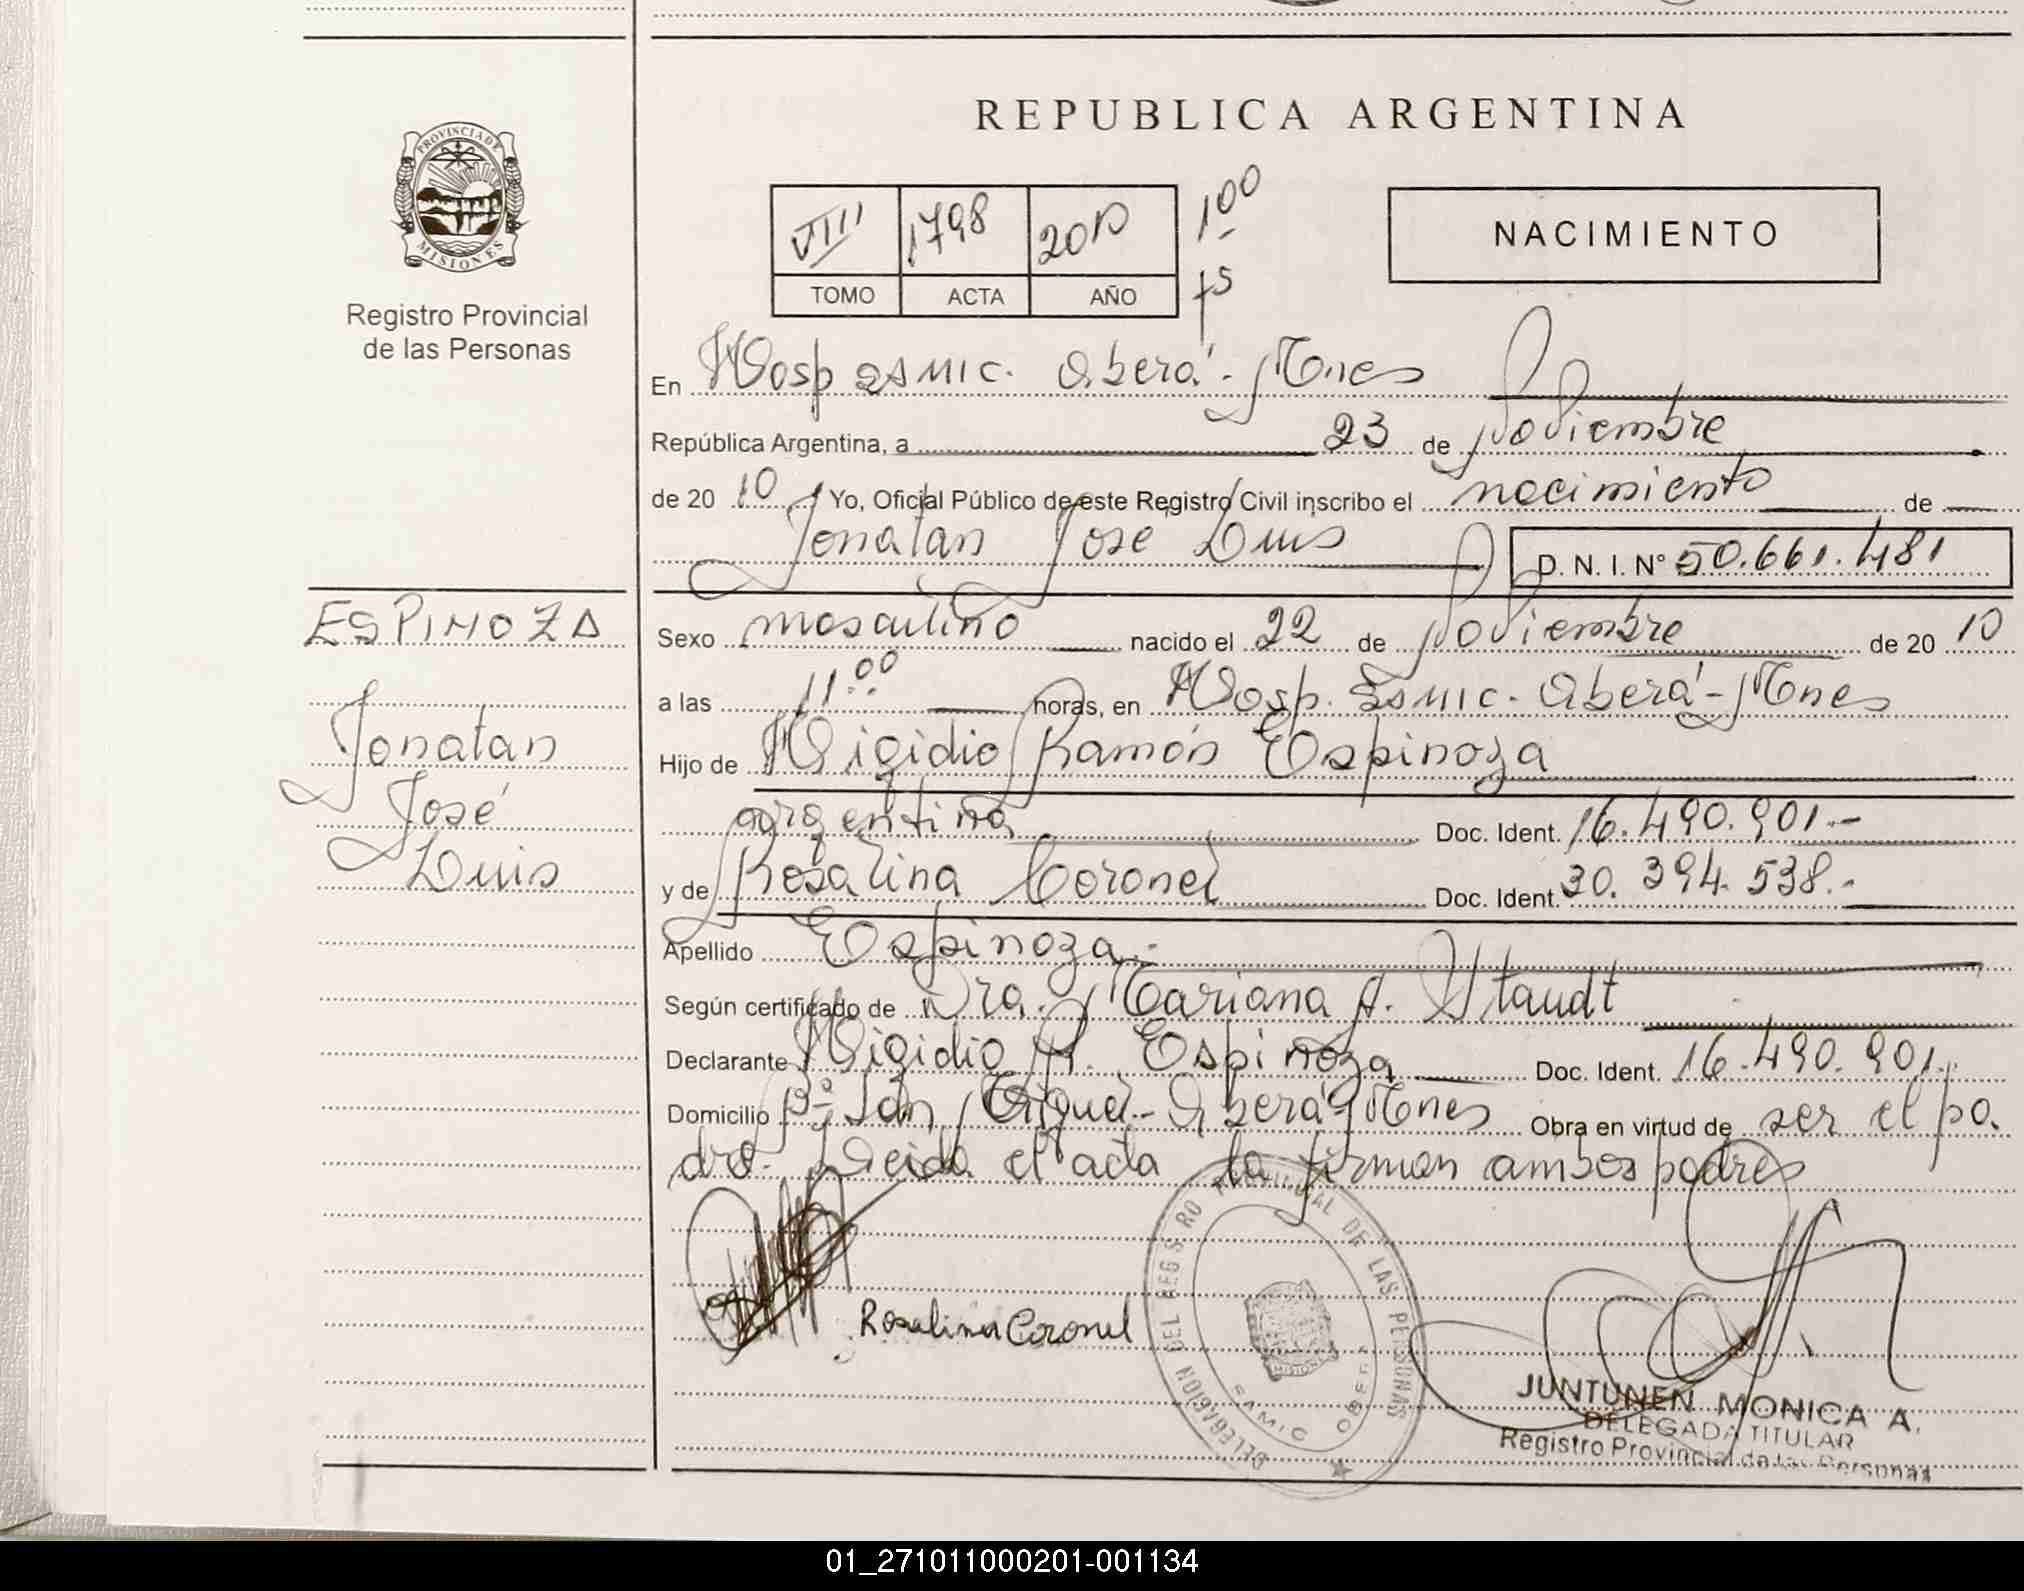 PROVINCIA DE
MISIONES
Registro Provincial
de las Personas
ESPINOZA
Jonatan
José
Luis
REPUBLICA ARGENTINA
VIII 1798 2010
TOMO ACTA AÑO
100
fs
NACIMIENTO
En Hosp SAMIC. Oberá - Mnes
República Argentina, a 23 de Noviembre
de 20 10 Yo, Oficial Público de este Registro Civil inscribo el nacimiento de
Jonatan José Luis D. N. I. N° 50.661.481
Sexo masculino nacido el 22 de Noviembre de 20 10
a las 11.00 horas, en Hosp. SAMIC. Oberá - Mnes
Hijo de Higidio Ramón Espinoza
argentina Doc. Ident. 16.490.901.-
y de Rosalina Coronel Doc. Ident. 30.394.538.-
Apellido Espinoza.-
Según certificado de Dra. Mariana A. Staudt
Declarante Higidio R. Espinoza Doc. Ident. 16.490.901.
Domicilio Bº San Miguel - Oberá - Mnes Obra en virtud de ser el pa.
dre. Leida el acta la firman ambos padres
Rosalina Coronel
DELEGACION DEL REGISTRO PROVINCIAL DE LAS PERSONAS
SAMIC OBERA
MISIONES
JUNTUNEN MONICA A.
DELEGADA TITULAR
Registro Provincial de las Personas
01_271011000201-001134